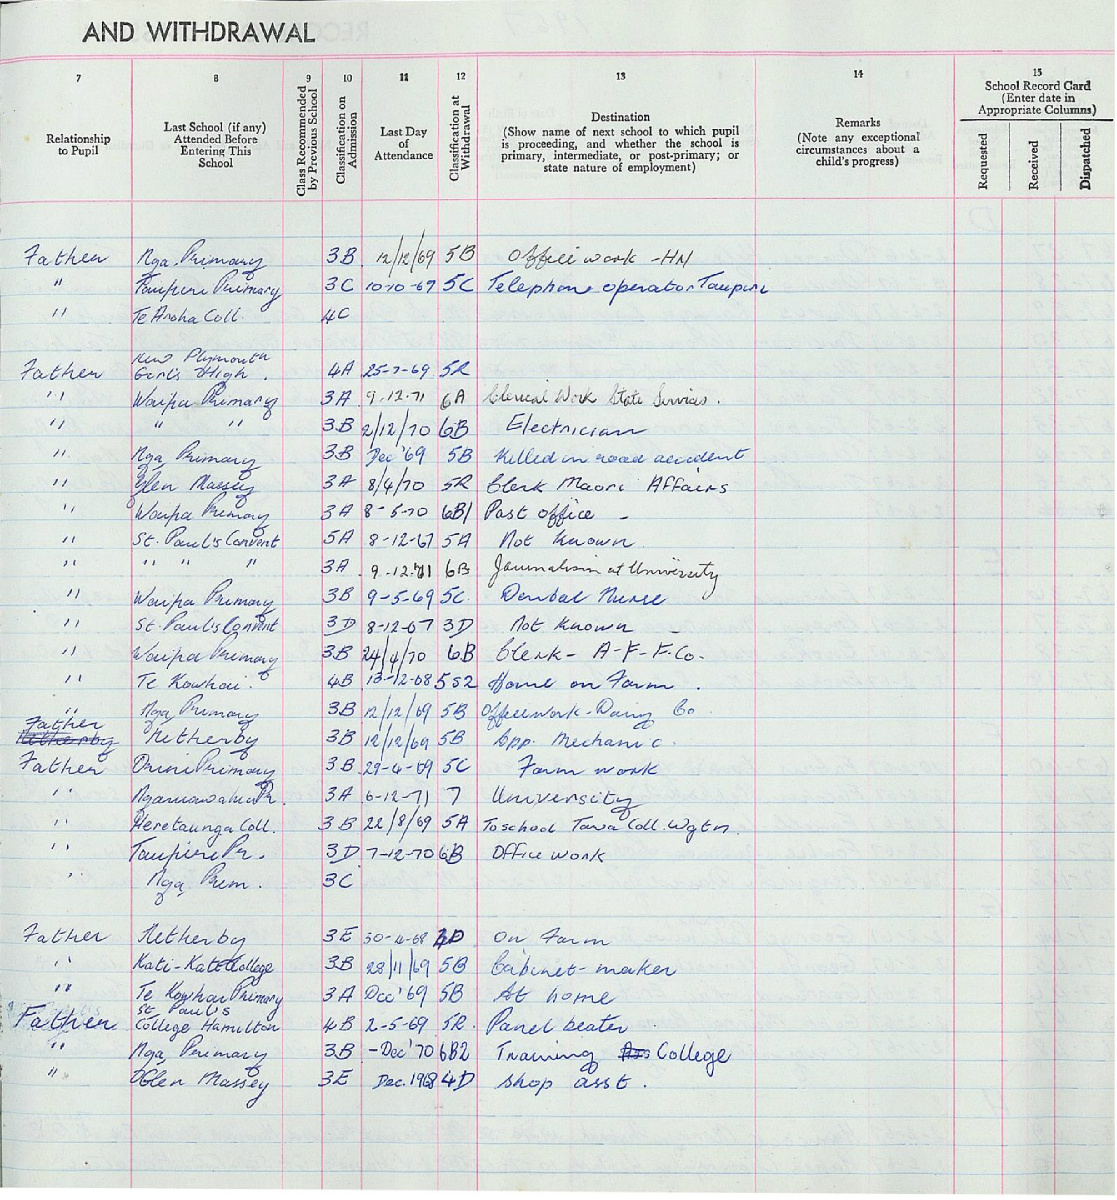 AND WITHDRAWAL
7 8 9 10 11 12 13 14 15
Relationship to Pupil
Last School (if any) Attended Before Entering This School
Class Recommended by Previous School
Classification on Admission
Last Day of Attendance
Classification at Withdrawal
Destination (Show name of next school to which pupil is proceeding, and whether the school is primary, intermediate, or post-primary; or state nature of employment)
Remarks (Note any exceptional circumstances about a child's progress)
School Record Card (Enter date in Appropriate Columns)
Requested Received Dispatched
Father Nga. Primary 3B 12/12/69 5B Office work - HN
" Taupiri Primary 3C 10-10-67 5C Telephone operator Taupiri
" Te Aroha Coll. 4C
New Plymouth
Father Girl's High. 4A 25-7-69 5R
" Waipa Primary 3A 9.12.71 6A Clerical Work State Services.
" " " 3B 2/12/70 6B Electrician
" Nga Primary 3B Dec '69 5B Killed in road accident
" Glen Massey 3A 8/4/70 5R Clerk Maori Affairs
" Waipa Primary 3A 8-5-70 6B1 Post office -
" St. Paul's Convent 5A 8-12-67 5A Not Known
" " " " 3A 9.12.71 6B Journalism at University
" Waipa Primary 3B 9-5-69 5C Dental Nurse
" St. Paul's Convent 3D 8-12-67 3D Not Known -
" Waipa Primary 3B 24/4/70 6B Clerk - A-F-F.Co.
" Te Kowhai. 4B 13-12-68 5S2 Home on Farm.
" Nga Primary 3B 12/12/69 5B Office work - Dairy Co
Father
Netherby Netherby 3B 12/12/69 5B App. Mechanic.
Father Orini Primary 3B 29-4-69 5C Farm work
" Ngaruawahia Pr. 3A 6-12-71 7 University
" Heretaunga Coll. 3B 22/8/69 5A To school Tawa Coll. Wgtn.
" Taupiri Pr. 3D 7-12-70 6B Office work
" Nga Prim. 3C
Father Netherby 3E 30-4-68 4D On Farm
" Kati-Kati College 3B 28/11/69 5B Cabinet-maker
" Te Kowhai Primary 3A Dec '69 5B At home
St Paul's
Father College Hamilton 4B 2-5-69 5R. Panel beater
" Nga Primary 3B -Dec '70 6B2 Training Ass College
" Glen Massey 3E Dec. 1968 4D Shop asst.